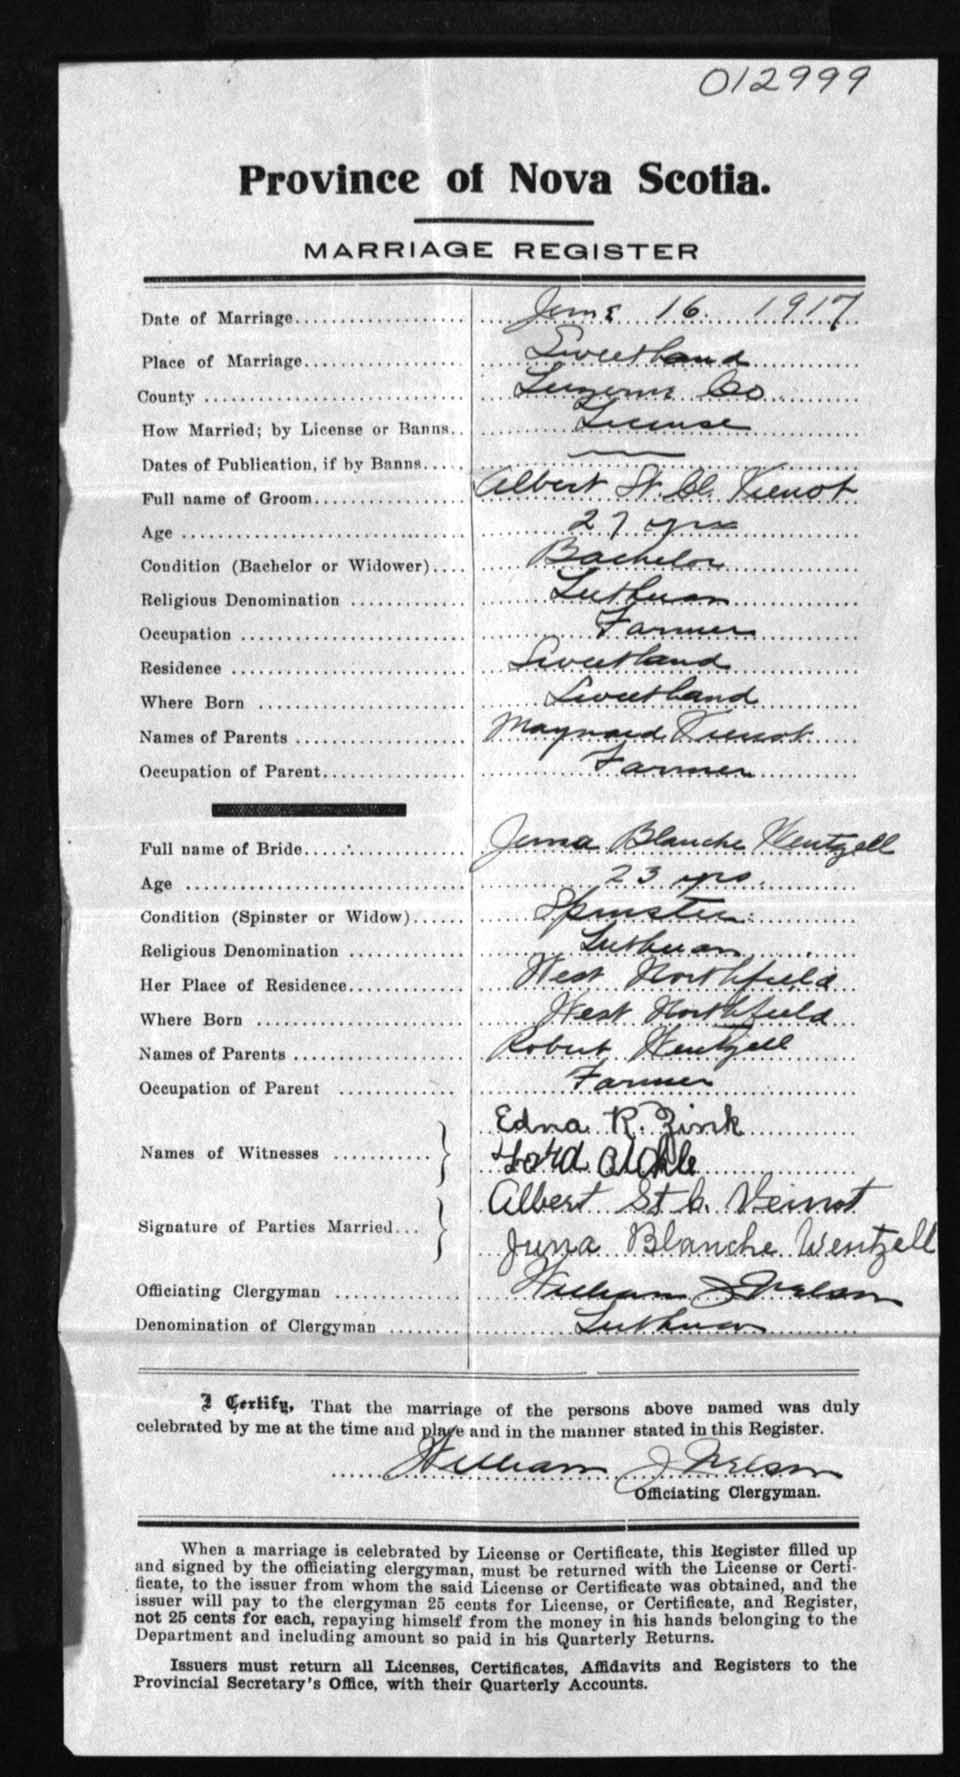 012999
Province of Nova Scotia.
MARRIAGE REGISTER
Date of Marriage June 16. 1917
Place of Marriage Sweetland
County Co
How Married; by License or Banns License
Dates of Publication, if by Banns
Full name of Groom Albert St. Cl. Vienot
Age 27 yrs
Condition (Bachelor or Widower) Bachelor
Religious Denomination Lutheran
Occupation Farmer
Residence Sweetland
Where Born Sweetland
Names of Parents Maynard Vienot
Occupation of Parent Farmer
Full name of Bride Blanche Wentzell
Age 23 yrs.
Condition (Spinster or Widow) Spinster
Religious Denomination Lutheran
Her Place of Residence West Northfield
Where Born West Northfield
Names of Parents Robert Wentzell
Occupation of Parent Farmer
Edna R. Zink
Names of Witnesses
Albert St. C. Veinot
Signature of Parties Married
Blanche Wentzell
Officiating Clergyman William J Nelson
Denomination of Clergyman Lutheran
I Certify, That the marriage of the persons above named was duly
celebrated by me at the time and place and in the manner stated in this Register.
William J Nelson
Officiating Clergyman.
When a marriage is celebrated by License or Certificate, this Register filled up
and signed by the officiating clergyman, must be returned with the License or Certi-
ficate, to the issuer from whom the said License or Certificate was obtained, and the
issuer will pay to the clergyman 25 cents for License, or Certificate, and Register,
not 25 cents for each, repaying himself from the money in his hands belonging to the
Department and including amount so paid in his Quarterly Returns.
Issuers must return all Licenses, Certificates, Affidavits and Registers to the
Provincial Secretary's Office, with their Quarterly Accounts.